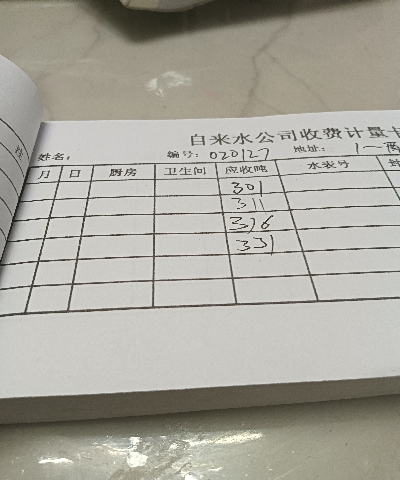 自来水公司收费计量卡
姓名： 编号：020127 地址：1一西
月 日 厨房 卫生间 应收吨 水表号
301
311
326
331
注